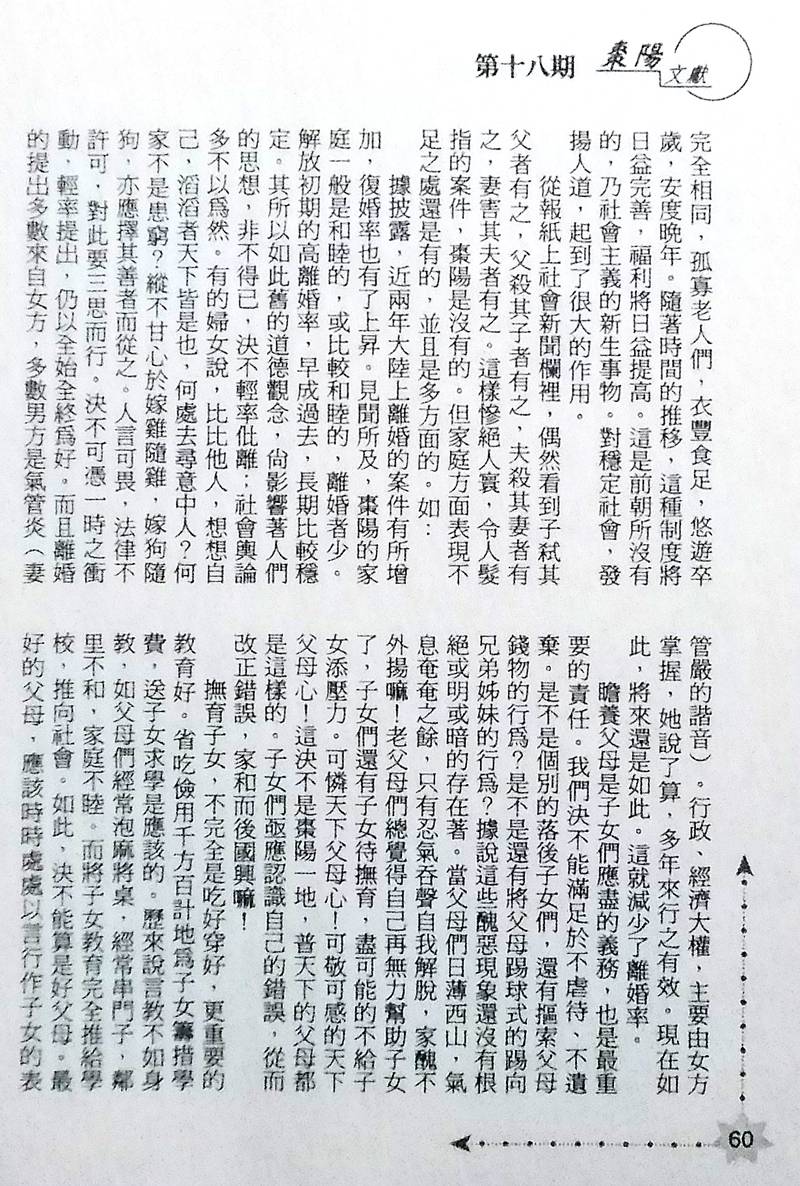 第十八期
棗陽
文獻
完全相同，孤寡老人們，衣豐食足，悠遊卒
歲，安度晚年。隨著時間的推移，這種制度將
日益完善，福利將日益提高。這是前朝所沒有
的，乃社會主義的新生事物。對穩定社會，發
揚人道，起到了很大的作用。
從報紙上社會新聞欄裡，偶然看到子弒其
父者有之，父殺其子者有之，夫殺其妻者有
之，妻害其夫者有之。這樣慘絕人寰，令人髮
指的案件，棗陽是沒有的。但家庭方面表現不
足之處還是有的，並且是多方面的。如：
據披露，近兩年大陸上離婚的案件有所增
加，復婚率也有了上昇。見聞所及，棗陽的家
庭一般是和睦的，或比較和睦的，離婚者少。
解放初期的高離婚率，早成過去，長期比較穩
定。其所以如此舊的道德觀念，尙影響著人們
的思想，非不得已，決不輕率仳離；社會輿論
多不以爲然。有的婦女說，比比他人，想想自
己，滔滔者天下皆是也，何處去尋意中人？何
家不是患窮？縱不甘心於嫁雞隨雞，嫁狗隨
狗，亦應擇其善者而從之。人言可畏，法律不
許可，對此要三思而行。決不可憑一時之衝
動，輕率提出，仍以全始全終爲好。而且離婚
的提出多數來自女方，多數男方是氣管炎（妻
管嚴的諧音）。行政、經濟大權，主要由女方
掌握，她說了算，多年來行之有效。現在如
此，將來還是如此。這就減少了離婚率。
瞻養父母是子女們應盡的義務，也是最重
要的責任。我們決不能滿足於不虐待、不遺
棄。是不是個別的落後子女們，還有摳索父母
錢物的行爲？是不是還有將父母踢球式的踢向
兄弟姊妹的行爲？據說這些醜惡現象還沒有根
絕或明或暗的存在著。當父母們日薄西山，氣
息奄奄之餘，只有忍氣吞聲自我解脫，家醜不
外揚嘛！老父母們總覺得自己再無力幫助子女
了，子女們還有子女待撫育，盡可能的不給子
女添壓力。可憐天下父母心！可敬可感的天下
父母心！這決不是棗陽一地，普天下的父母都
是這樣的。子女們亟應認識自己的錯誤，從而
改正錯誤，家和而後國興嘛！
撫育子女，不完全是吃好穿好，更重要的
教育好。省吃儉用千方百計地爲子女籌措學
費，送子女求學是應該的。歷來說言教不如身
教，如父母們經常泡麻將桌，經常串門子，鄰
里不和，家庭不睦。而將子女教育完全推給學
校，推向社會。如此，決不能算是好父母。最
好的父母，應該時時處處以言行作子女的表
60